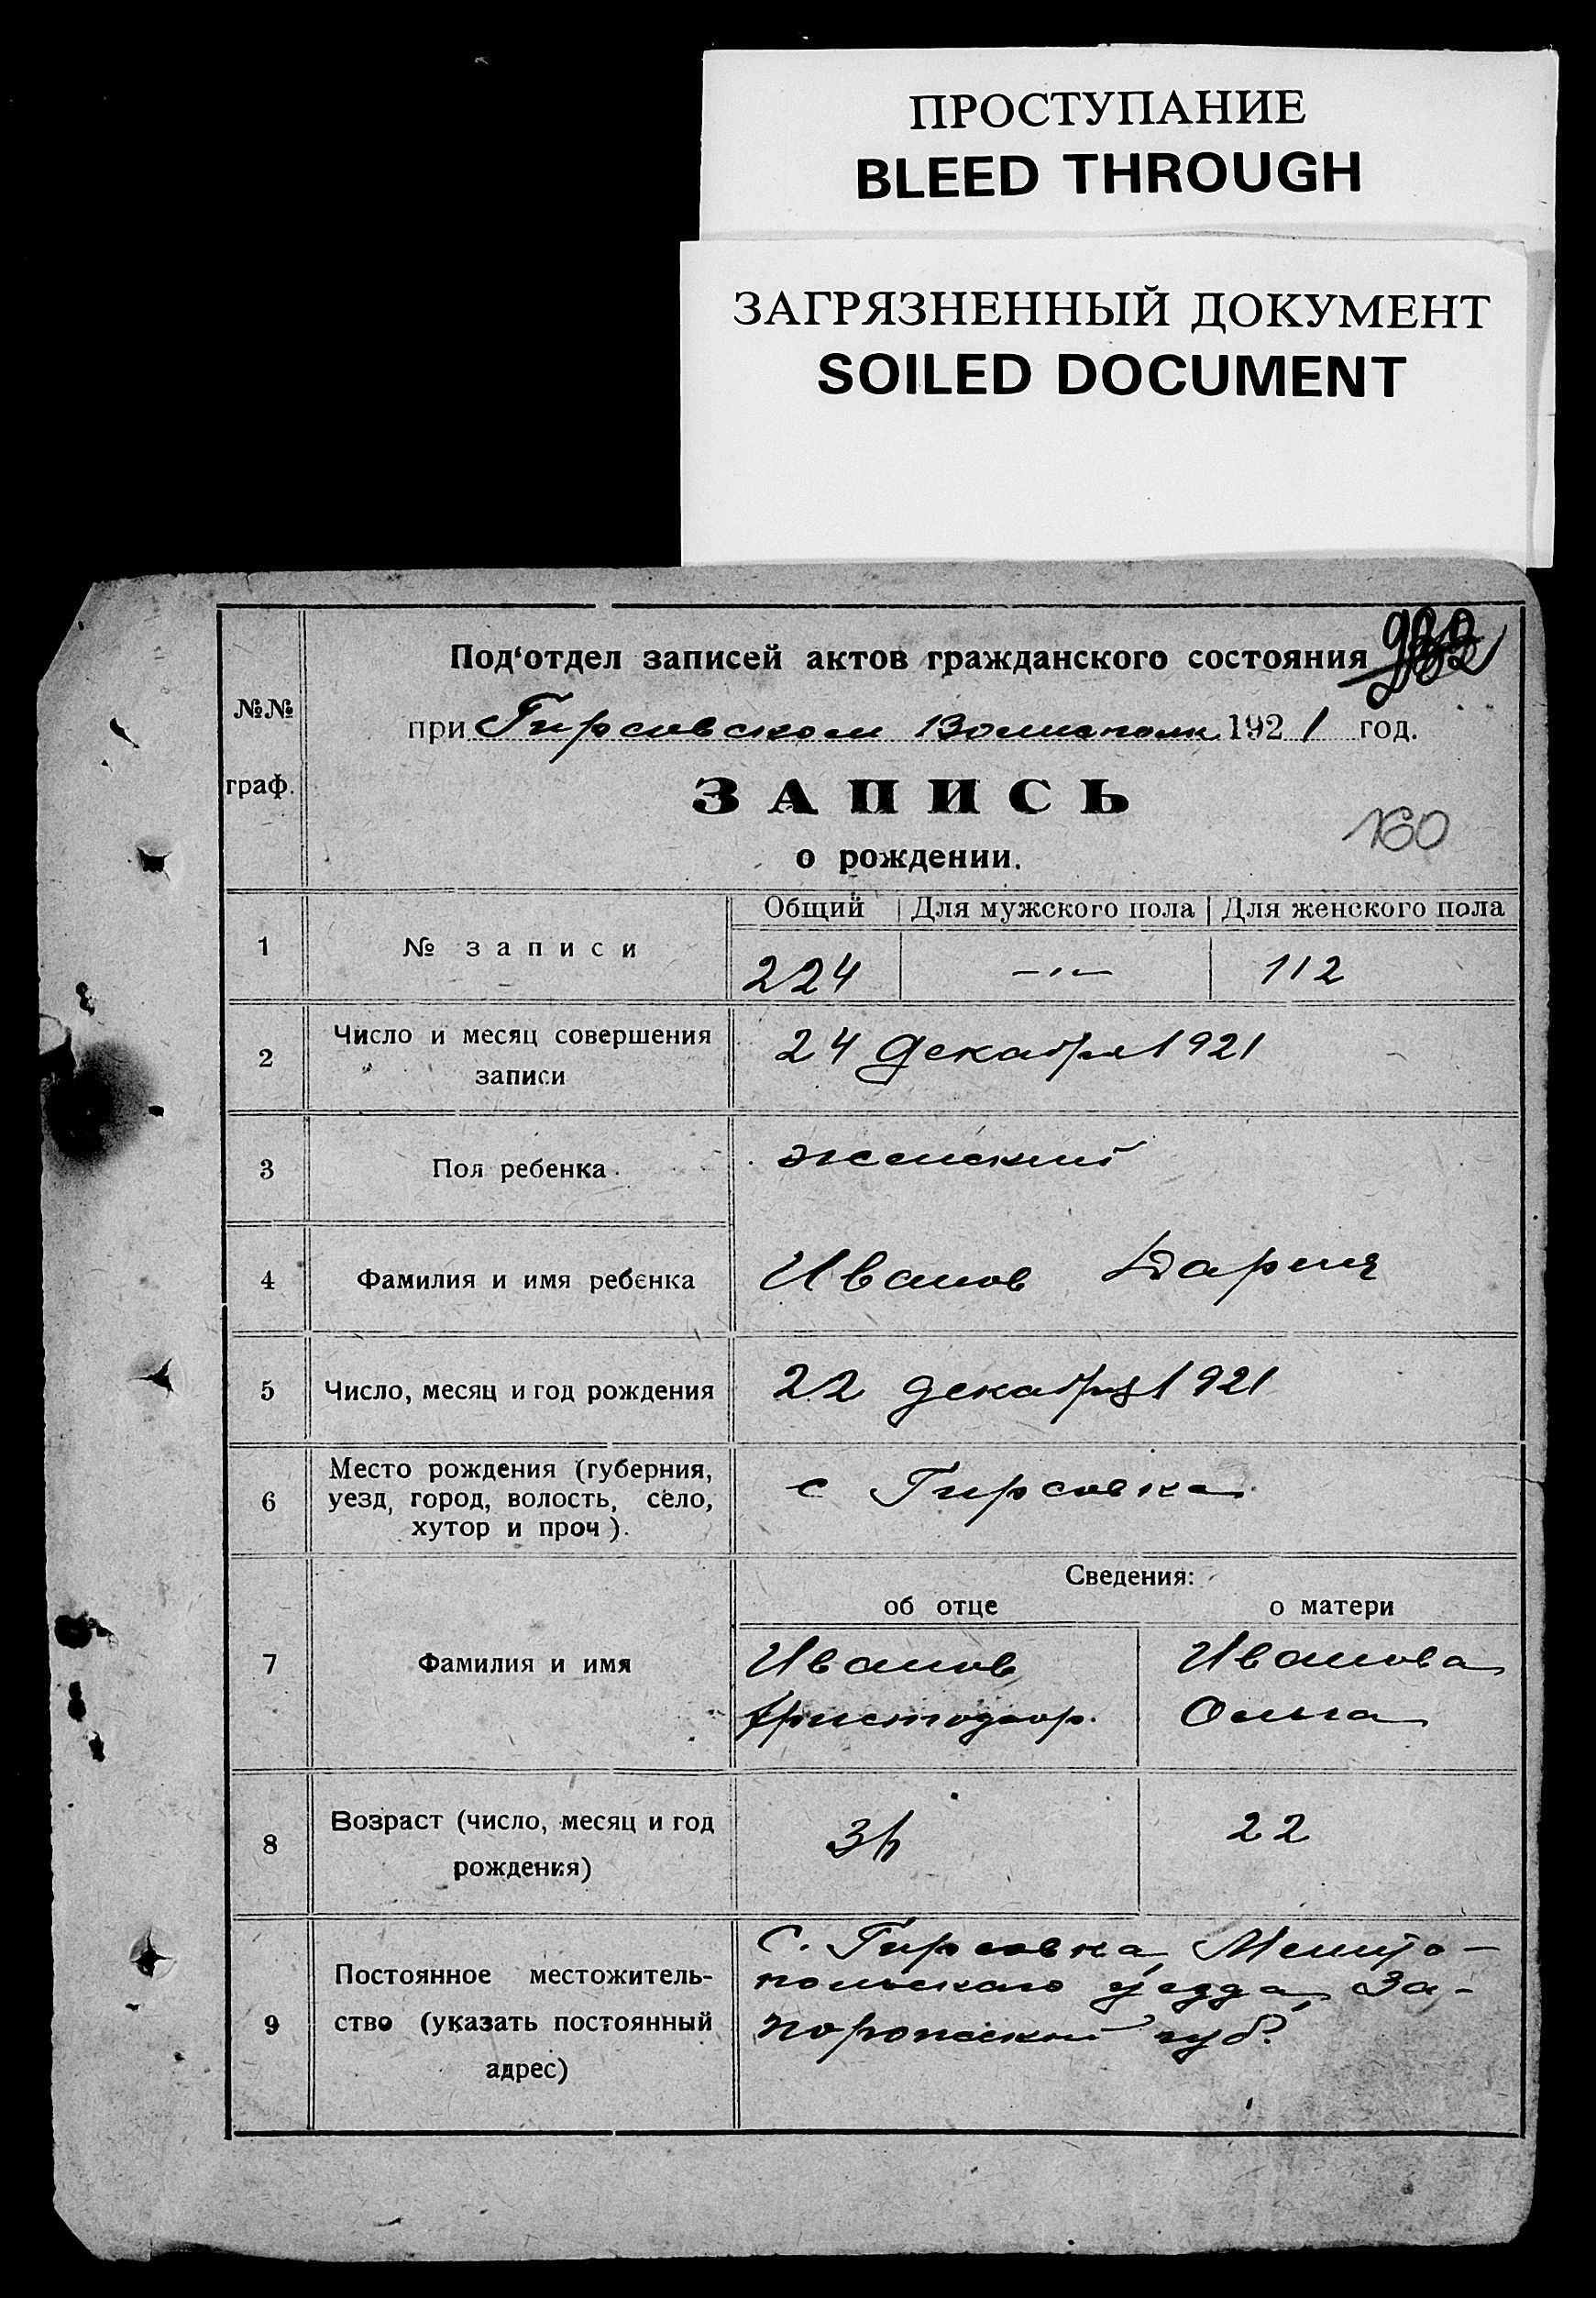 ПРОСТУПАНИЕ
BLEED THROUGH
ЗАГРЯЗНЕННЫЙ ДОКУМЕНТ
SOILED DOCUMENT
№№
граф.
Под‘отдел записей актов гражданского состояния
при Гирсовском 1921 год.
ЗАПИСЬ
160
о рождении.
Общий Для мужского пола Для женского пола
1 № записи 224 —〃— 112
2 Число и месяц совершения
записи
24 декабря 1921
3 Пол ребенка женский
4 Фамилия и имя ребенка Иванов Дария
5 Число, месяц и год рождения 22 декабря 1921
6 Место рождения (губерния,
уезд, город, волость, село,
хутор и проч).
с Гирсовка
Сведения:
об отце о матери
7 Фамилия и имя
Иванов Иванова
Христодор. Ольга
8 Возраст (число, месяц и год
рождения)
36 22
9 Постоянное местожитель-
ство (указать постоянный
адрес)
С. Гирсовка, Мелито-
польского уезда, За-
порожской губ.